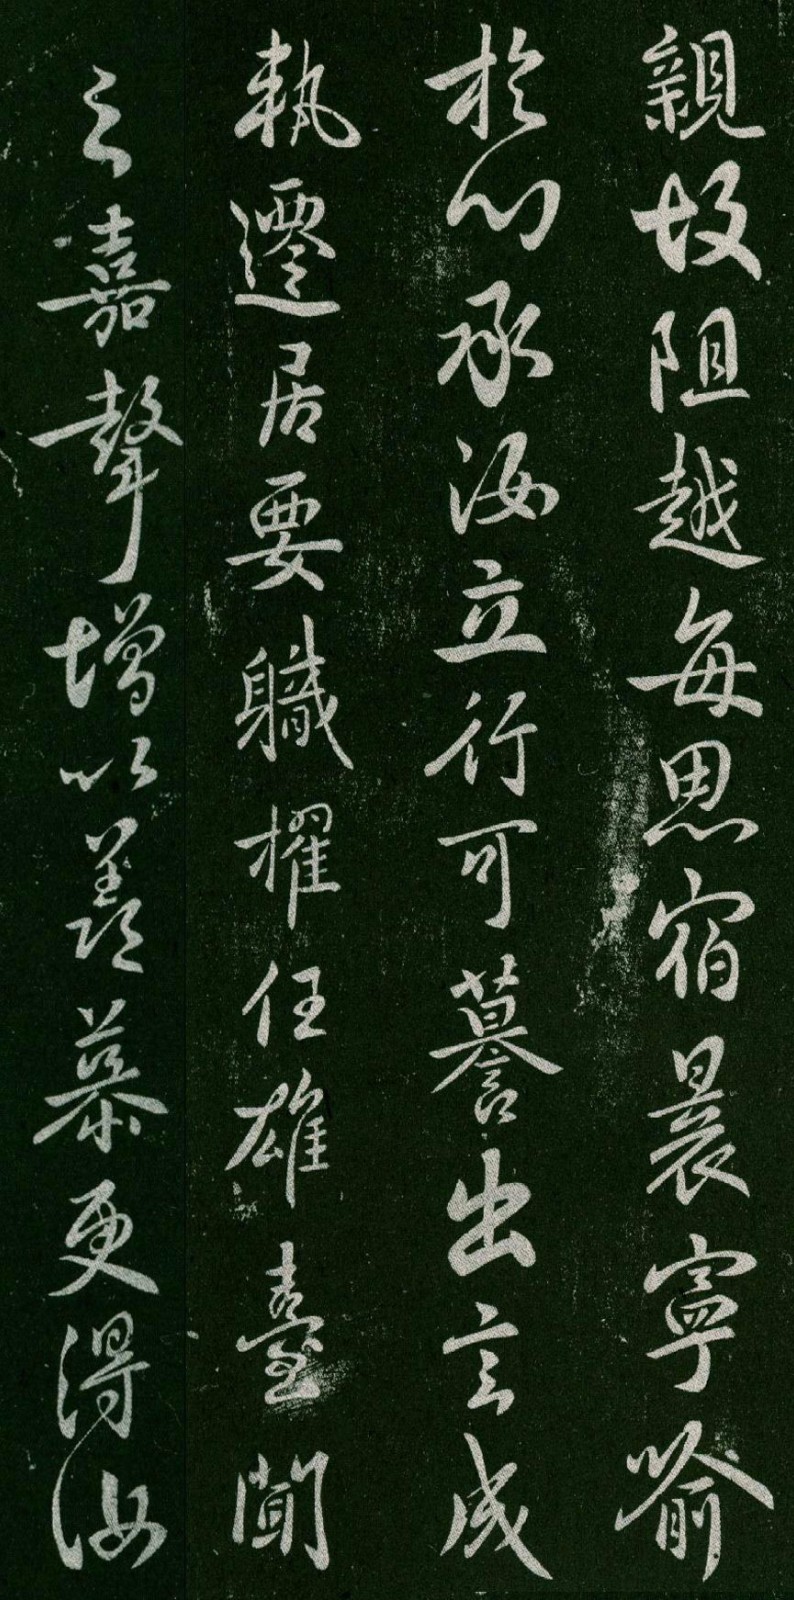 親故阻越每思宿晨寧喻
於心承汝立行可謩出言成
軌遷居要職擢任雄臺聞
之嘉聲增以羨慕更得汝